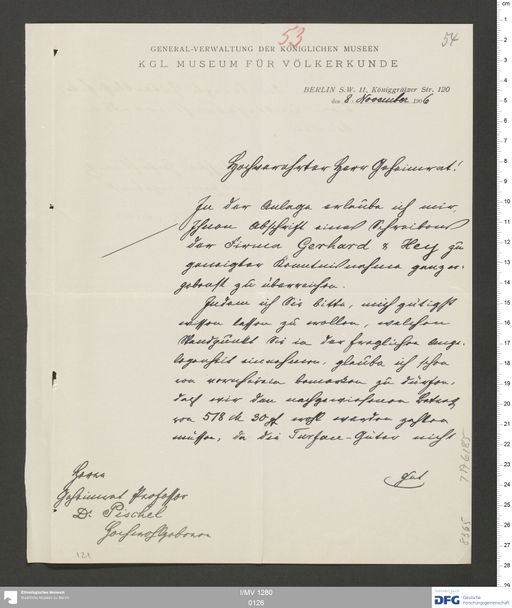 53
54
GENERAL-VERWALTUNG DER KÖNIGLICHEN MUSEEN
KGL. MUSEUM FÜR VÖLKERKUNDE
BERLIN S.W. 11, Königgrätzer Str. 120
den 8. November 1906
Hochverehrter Herr Geheimrat!
In der Anlage erlaube ich mir,
Ihnen Abschrift eines Schreibens
der Firma Gerhard & Hey zu
geneigter Kenntnisnahme ganz er-
gebenst zu überreichen.
Indem ich Sie bitte, mich gütigst
wissen lassen zu wollen, welchen
Standpunkt Sie in der fraglichen Ange-
legenheit einnehmen, glaube ich schon
von vornherein bemerken zu dürfen,
daß wir den nachgewiesenen Betrag
von 578 M 30 pf wohl werden zahlen
müssen, da die Turfan-Güter nicht
gut
Herrn
Geheimrat Professor
Dr. Pischel
Hochwohlgeboren
121
I/MV 1280
0126
Ethnologisches Museum
Staatliche Museen zu Berlin
DFG Deutsche
Forschungsgemeinschaft